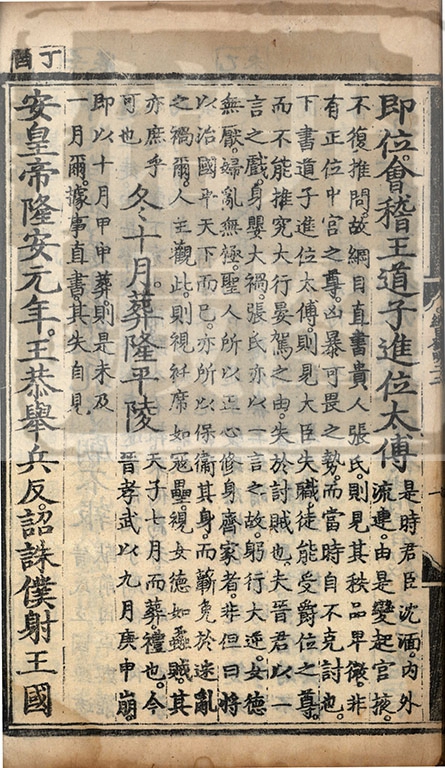 即位。會稽王道子進位太傅
是時君臣沈湎。内外
流連。由是變起宮掖。
不復推問。故綱目直書貴人張氏。則見其秩品早微。非
有正位中宮之尊。凶暴可畏之勢。而當時自不克討也。
下書道子進位太傅。則見大臣失職。徒能受爵位之尊。
而不能推究大行晏駕之由。失於討賊也。夫晉君以一
言之戲。身嬰大禍。張氏亦以一言之故。躬行大逆。女德
無厭。婦亂無極。聖人所以正心修身齊家者。非但曰將
以治國平天下而已。亦所以保衛其身。而蘄免於迷亂
之禍爾。人主觀此。則視袵席如冦壘。視女德如蟊賊。其
亦庶乎
可也
冬十月葬隆平陵
天子七月而葬。禮也。今
晉孝武以九月庚申崩。
即以十月甲申葬。則是未及
一月爾。據事直書。其失自見
丁酉
安皇帝隆安元年。王恭舉兵反。詔誅僕射王國